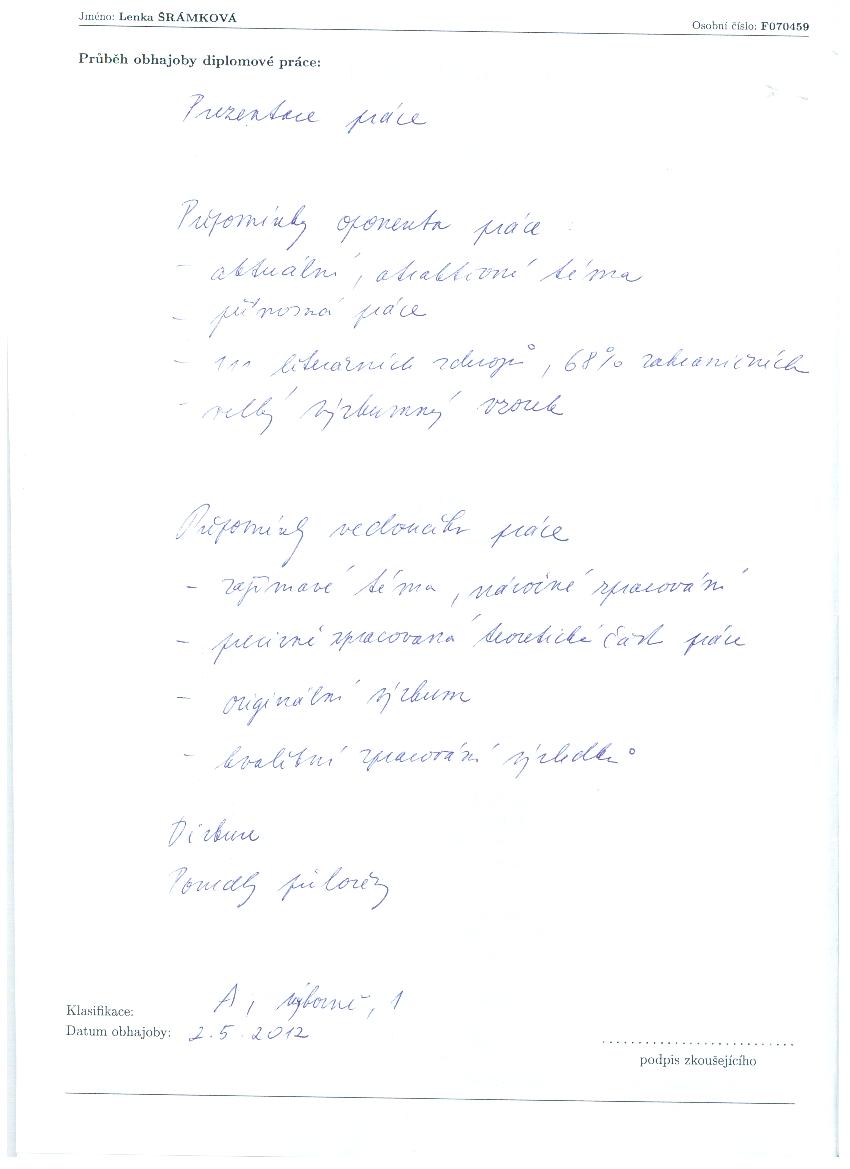 Jméno: Lenka ŠRÁMKOVÁ
Osobní číslo: F070459
Průběh obhajoby diplomové práce:
Prezentace práce
Připomínky oponenta práce :
- aktuální, atraktivní téma
- přínosná práce
- 111 literárních zdrojů, 68% zahraničních
- velký výzkumný vzorek
Připomínky vedoucího práce
- zajímavé téma, náročné zpracování
- precizně zpracovaná teoretická část práce
- originální výzkum
- kvalitní zpracování výsledků
Diskuse
Posudky přiloženy
Klasifikace: A, výborně, 1
Datum obhajoby: 2.5.2012
podpis zkoušejícího